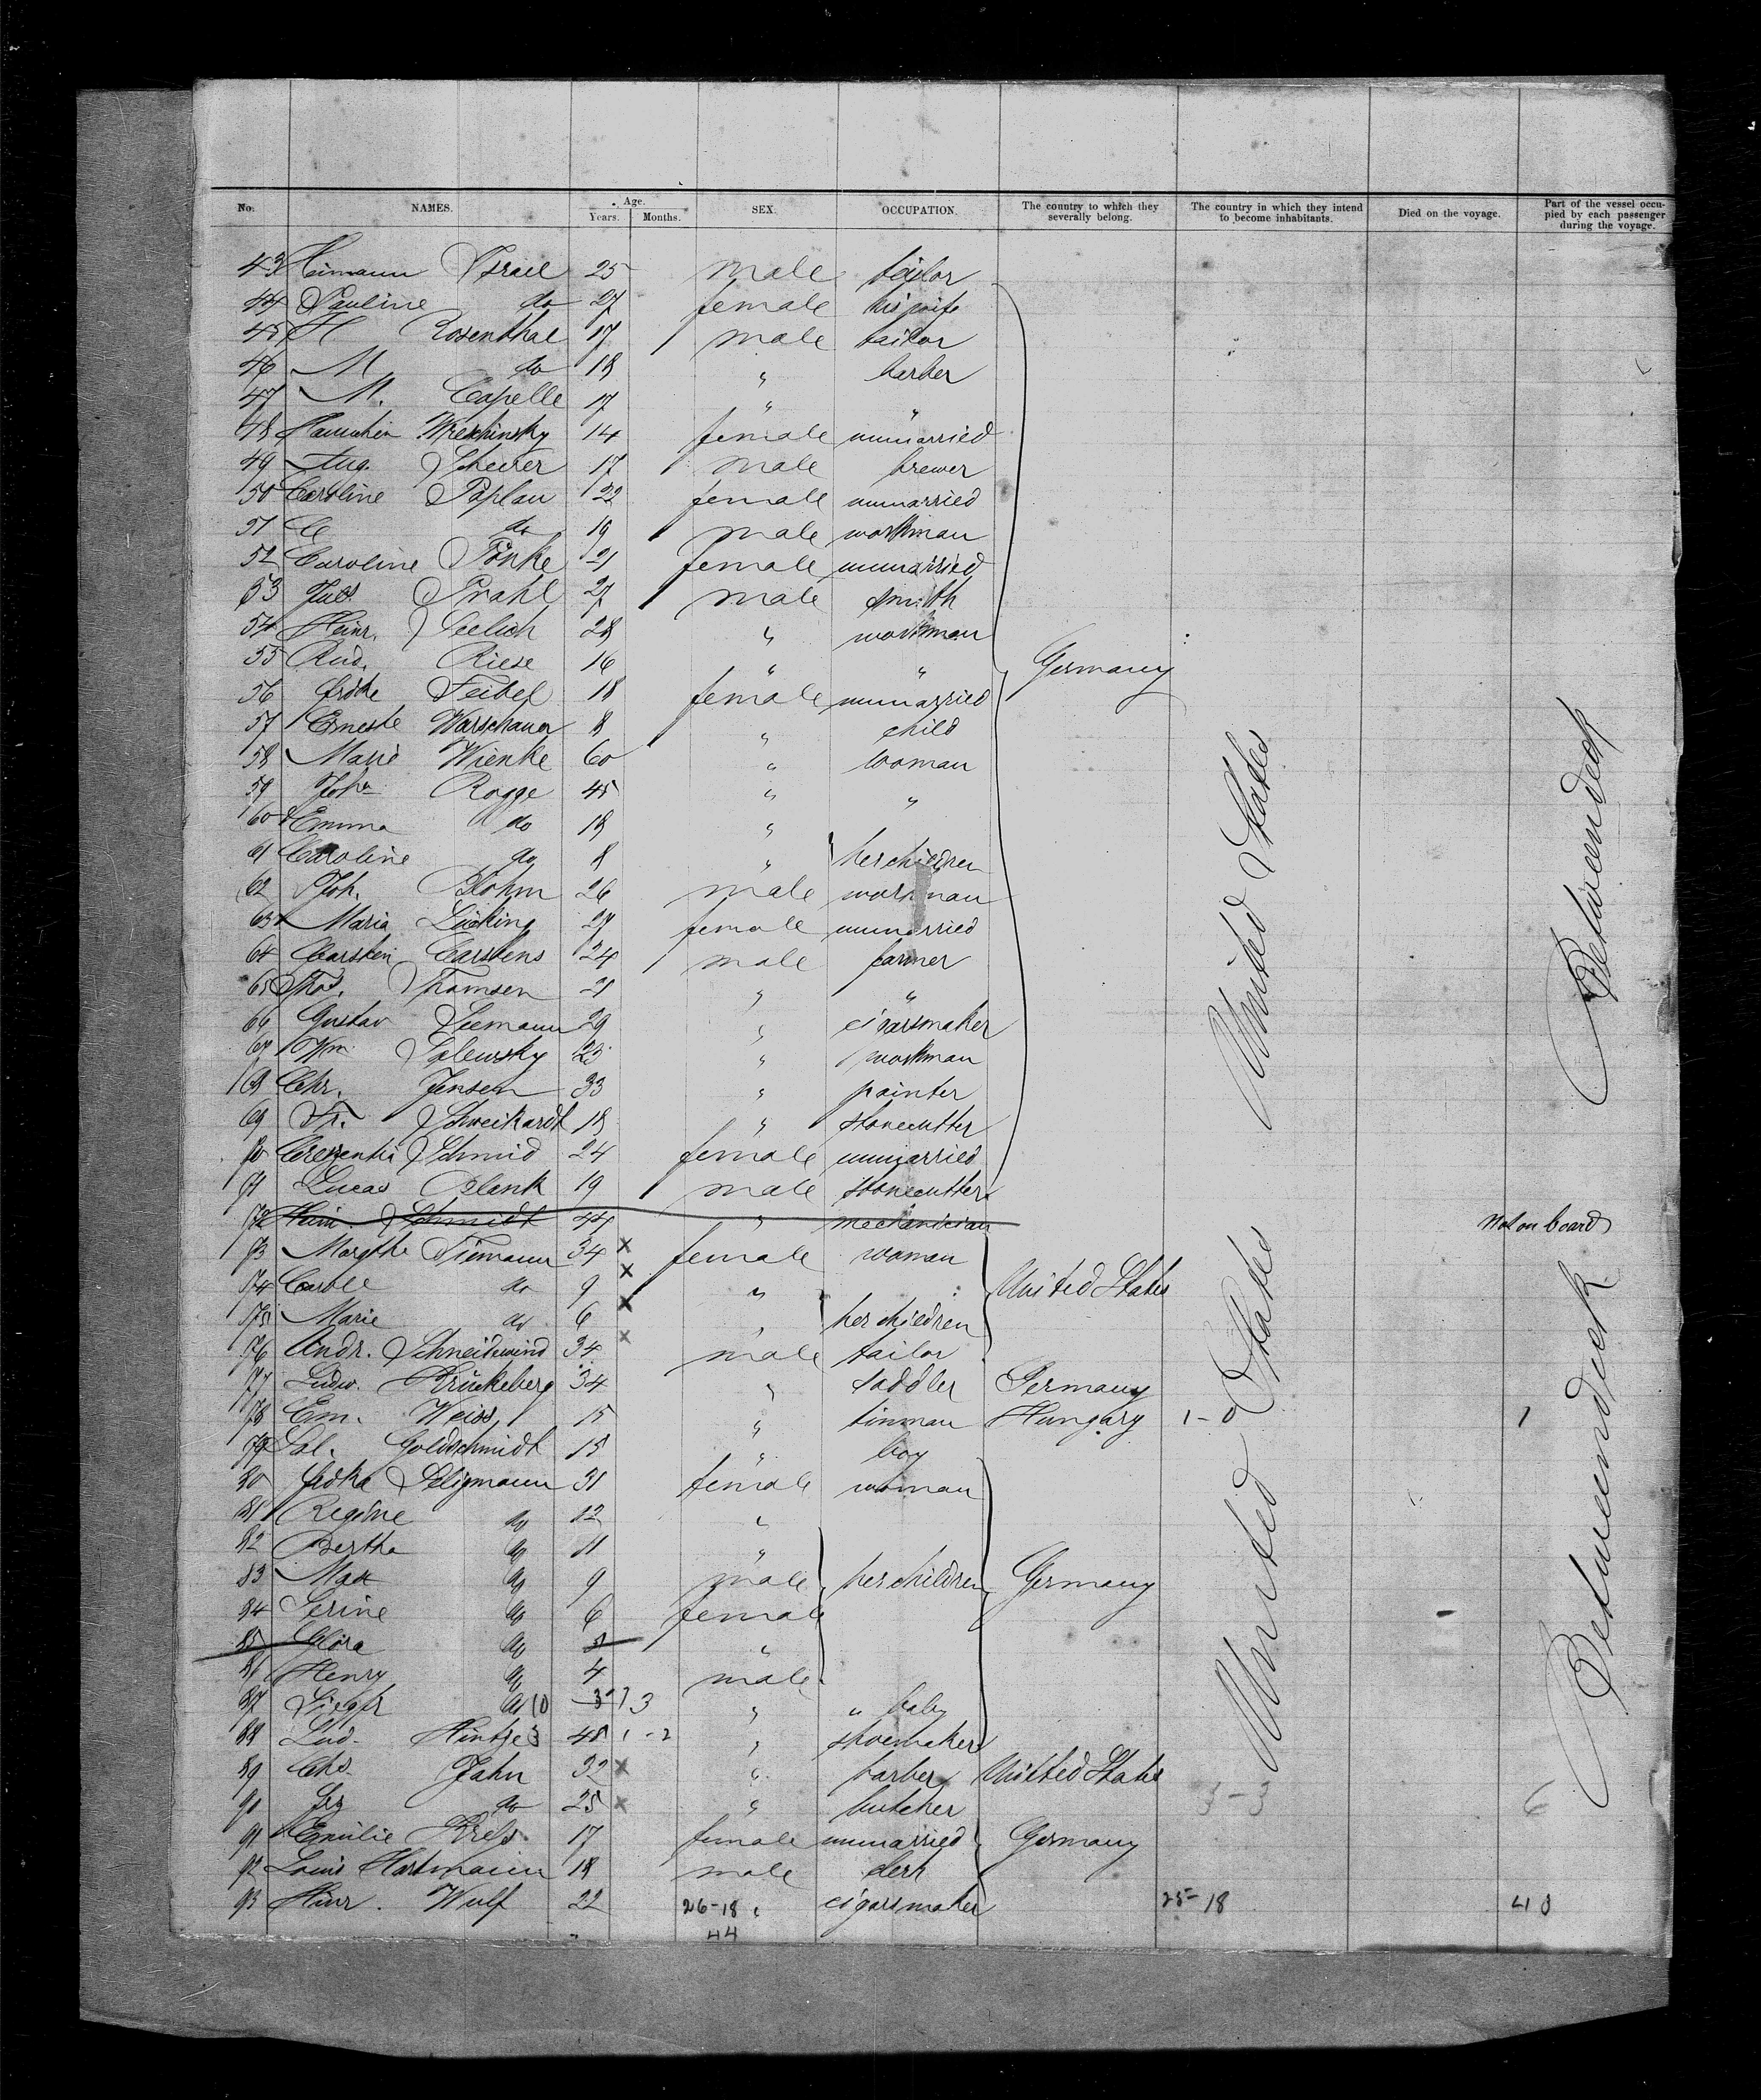 No. NAMES. Age. Years. Months. SEX. OCCUPATION. The country to which they severally belong. The country in which they intend to become inhabitants. Died on the voyage. Part of the vessel occupied by each passenger during the voyage.
43 Heimann Israel 25 male tailor
44 Pauline do 27 female his wife
45 H Rosenthal 17 male tailor
46 M do 18 " barber
47 M. Capelle 17 " "
48 Hannchen Wreschinsky 14 female unmarried
49 Aug. Scheurer 17 male brewer
50 Caroline Paplau 22 female unmarried
51 C do 19 male workman
52 Caroline Tönke 21 female unmarried
53 Juls. Prahl 27 male smith
54 Heinr. Seelich 28 " workman
55 Rud. Riese 16 " " Germany
56 Fridke Feibel 18 female unmarried
57 Erneste Warschauer 8 " child
58 Marie Wienke 60 " woman
59 Joha Rogge 45 " "
60 Emma do 18 "
61 Caroline do 8 " her children
62 Joh. Blohm 26 male workman
63 Maria Lücking 27 female unmarried
64 Carsten Carstens 24 male farmer
65 Thos. Thomsen 21 " "
66 Gustav Siemann 29 " cigarsmaker
67 Wm Salewsky 23 " workman
68 Chr. Jensen 33 " painter
69 Fr. Schweikardt 18 " stonecutter
70 Crezentia Schmid 24 female unmarried
71 Lucas Blank 19 male stonecutter
72 Heinr. Schmidt 44 " mechanician Not on board
73 Margthe Tiemann 34 x female woman
74 Carole do 9 x " United States
75 Marie do 6 x " her children
76 Andr. Schneidewind 34 x male tailor
77 Ludw. Brückeberg 34 " saddler Germany
78 Em. Weiss 15 " tinman Hungary 1-0 1
79 Sal. Goldschmidt 15 " boy
80 Fridka Seligmann 31 female woman
81 Regine do 12 "
82 Bertha do 11 "
83 Max do 9 male her children Germany
84 Serine do 6 female
85 Clora do "
86 Henry do 4 male
87 Siegfr do 10 3 " " baby
88 Lud. Hintze 48 1-2 " shoemaker
89 Chs. Jahn 32 x " barber United States
90 Frz do 25 x " butcher 3-3 6
91 Emilie Krefs 17 female unmarried Germany
92 Louis Hartmann 18 male clerk
93 Hinr. Wulf 22 26-18 " cigarsmaker 25-18 43
44
United States
United States
Betweendeck
Betweendeck